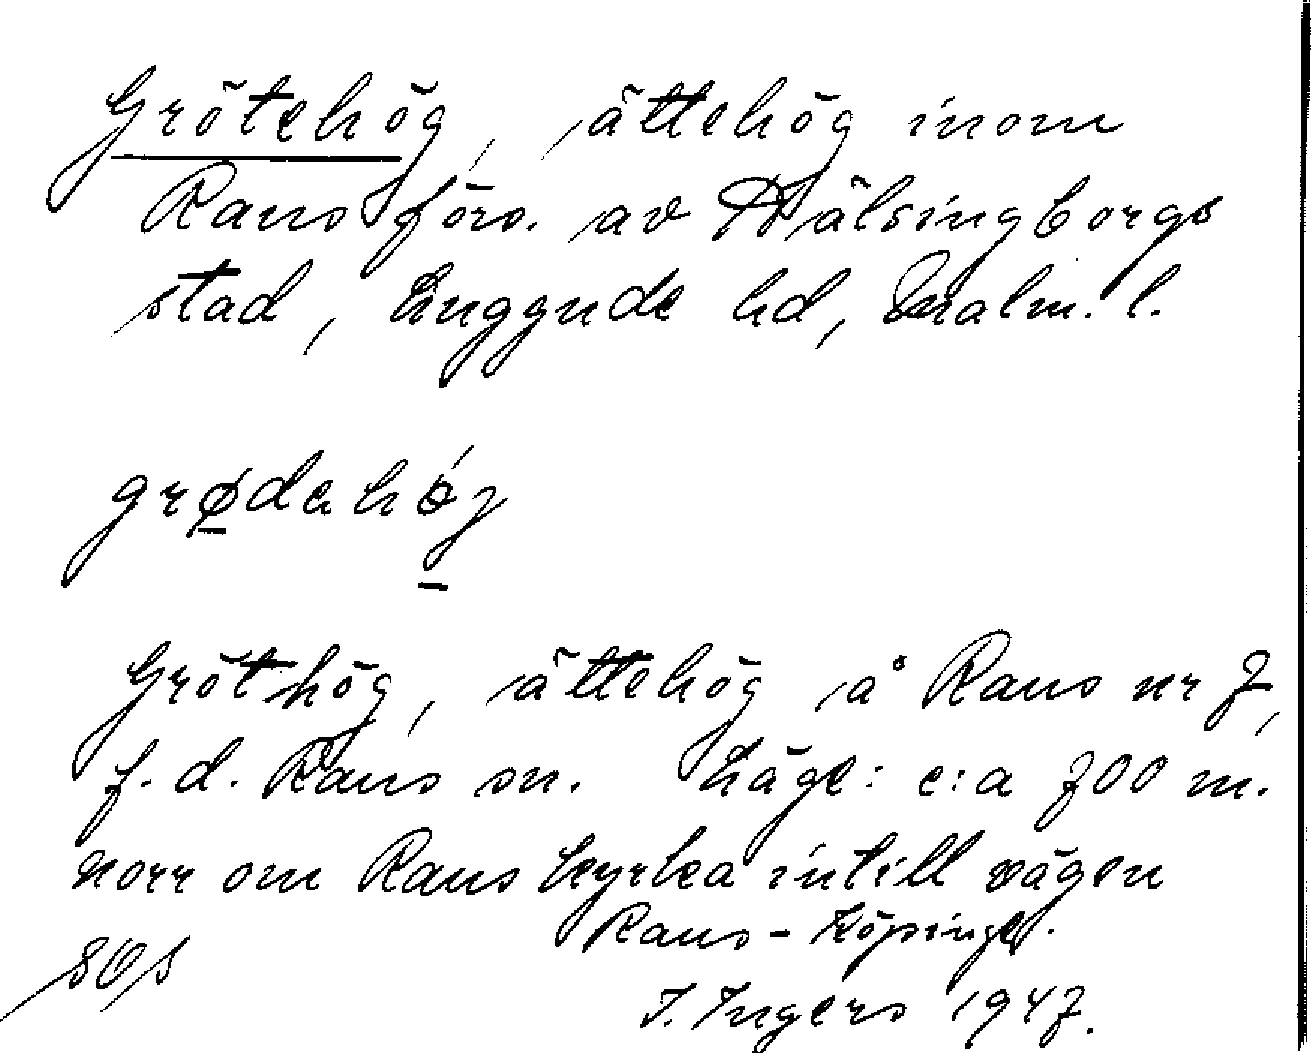 Grötehög, ättehög inom
Raus förs. av Hälsingborgs
stad, Luggude hd, Malm. l.
grødahøj
Gröthög, ättehög å Raus nr 7,
f. d. Raus sn. Läge: c:a 700 m.
norr om Raus kyrka intill vägen
Raus - Köpinge.
I. Ingers 1947.